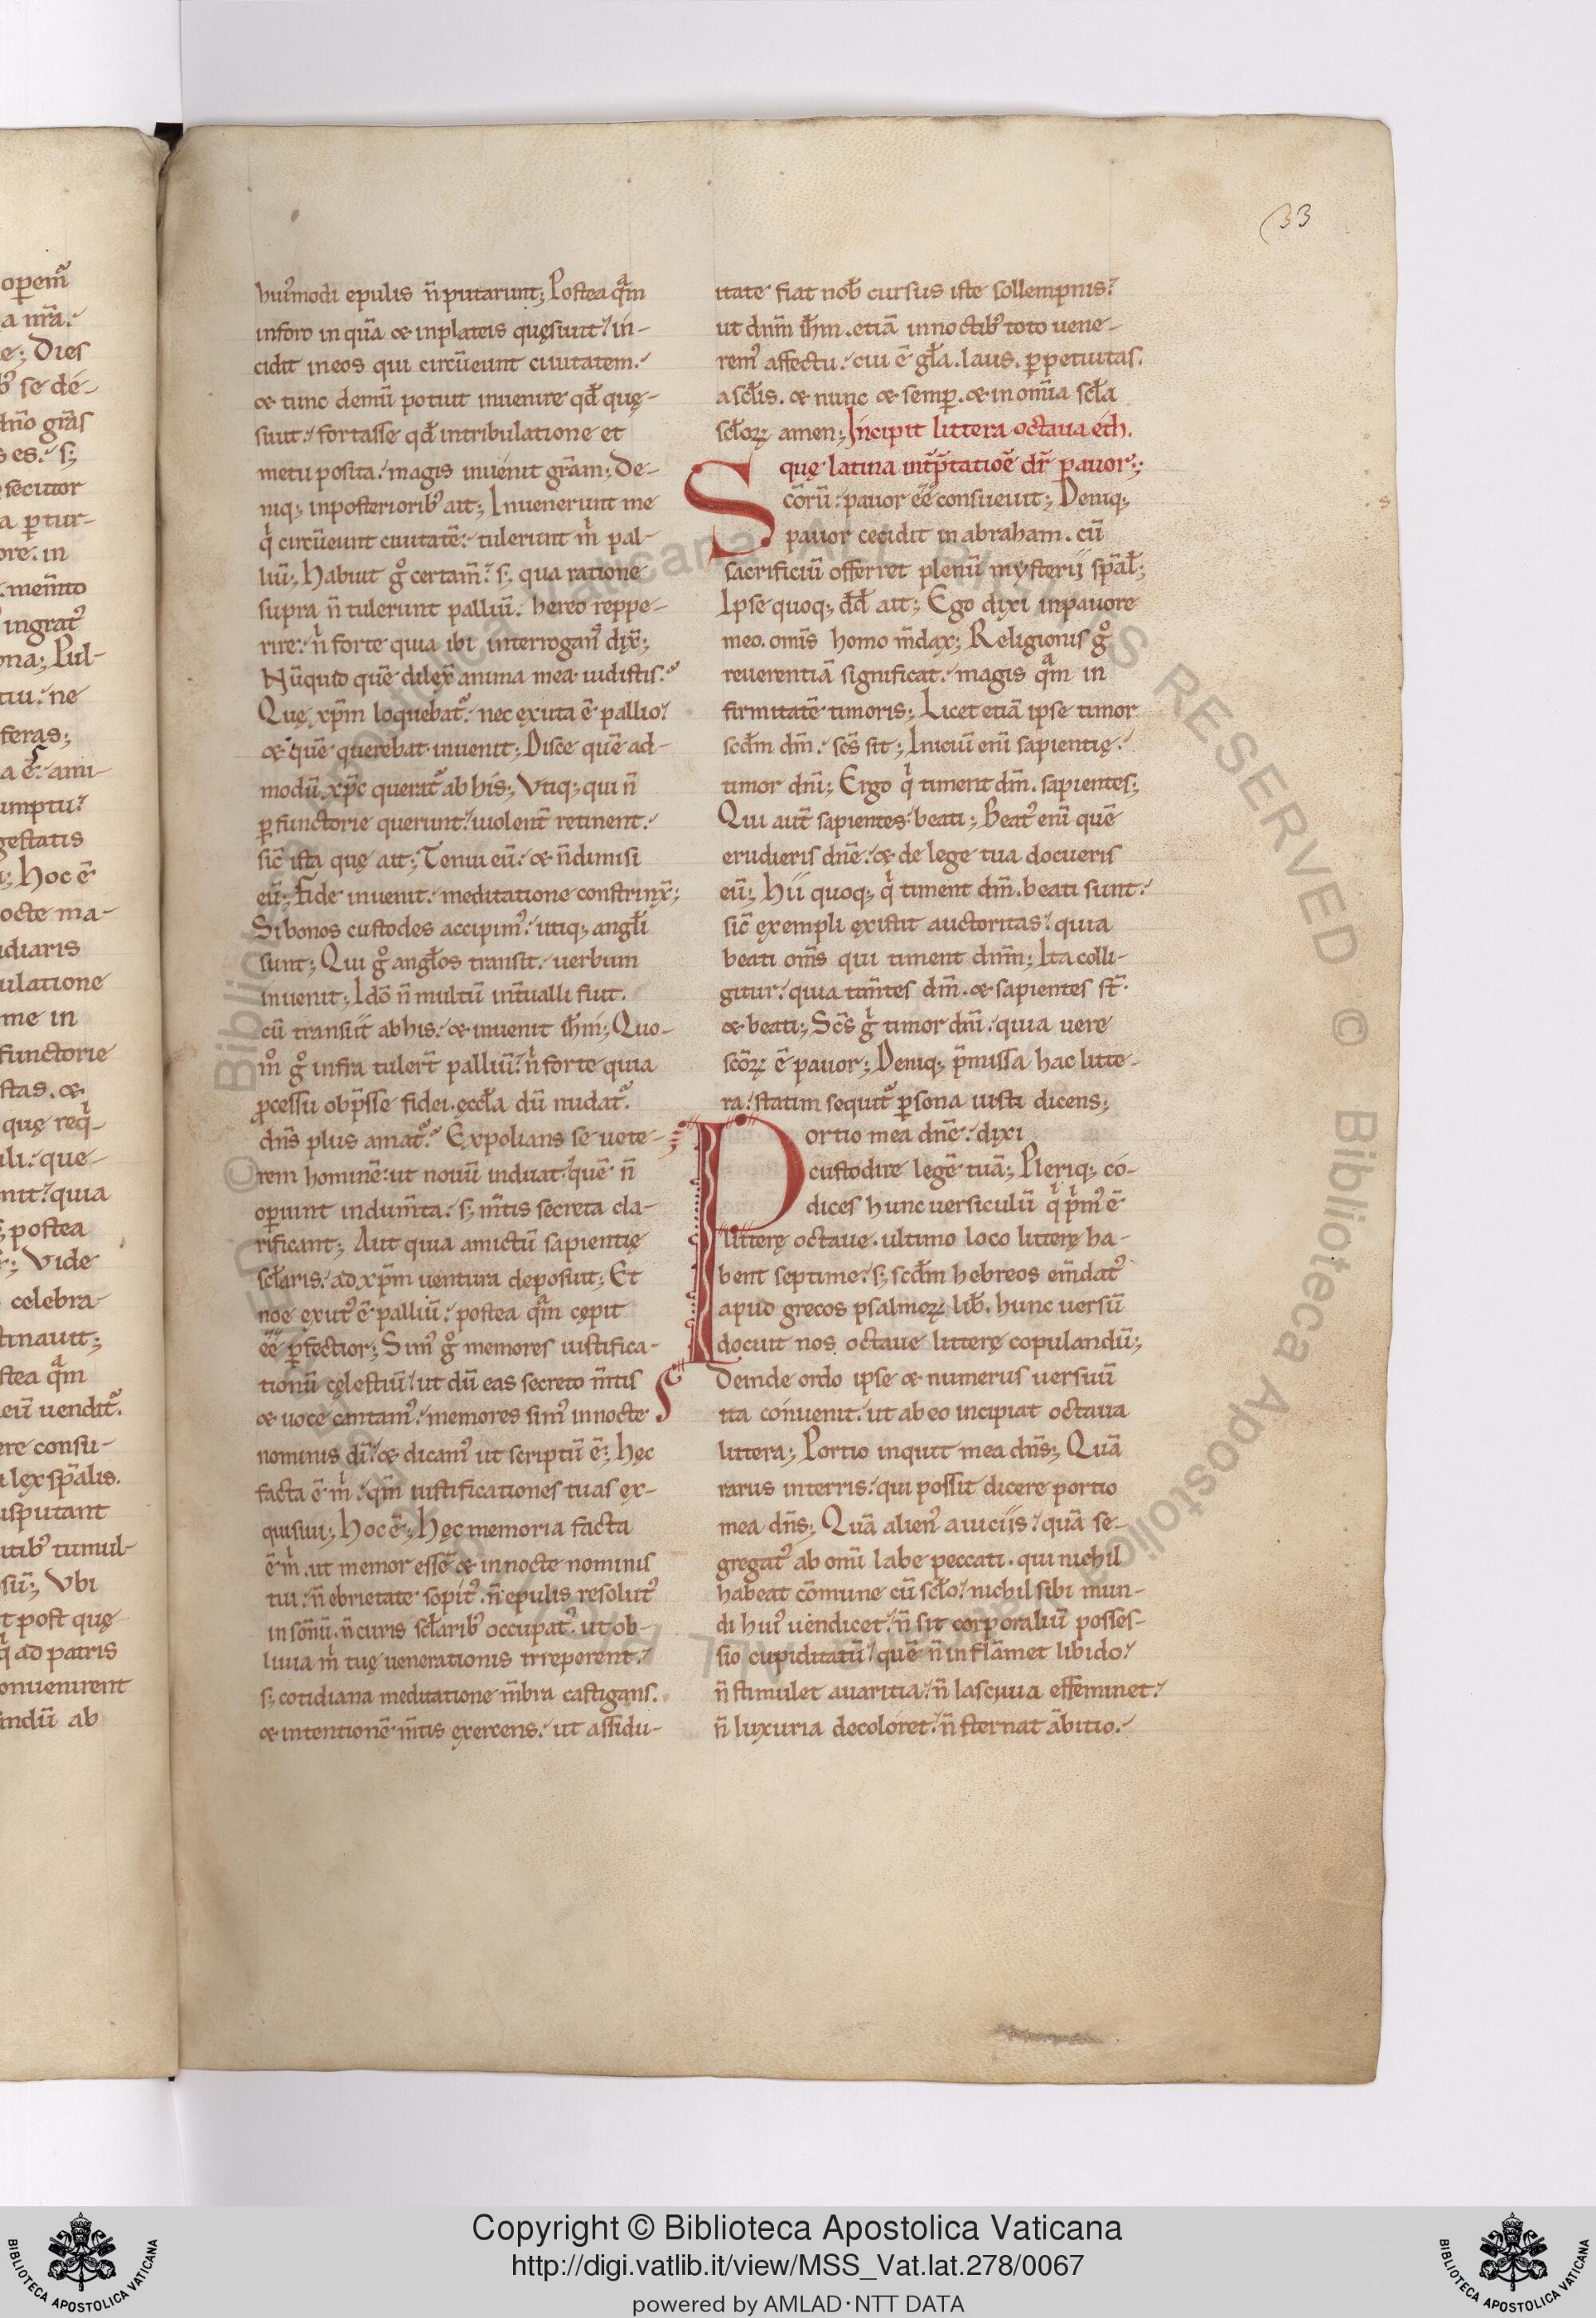 33
hui᷒modi epulis n̄ putarunt; Postea qͣm
inforo in quā & inplateis quęsiuit? in-
cidit ineos qui circūeunt ciuitatem.
& tunc demū potuit inuenire qđ quę-
siuit. fortasse qđ intribulatione et
metu posita. magis inuenit gr̄am; De-
niq; inposteriorib᷒ ait; Inuenerunt me
qͥ circūeunt ciuitatē. tulerunt mͥ pal-
liū; Habuit gͦ certam̄. s; qua ratione
supra n̄ tulerunt palliū. hereo reppe-
rire. nͥ forte quia ibi interrogan᷒ dix̄;
Nūquid quē dilex̄ anima mea uidistis?
Quę xp̄m loquebat᷑. nec exuta ē pallio?
& quē querebat inuenit; Disce quē ad-
modū xp̄c querat᷑ ab his; Vtiq; qui n̄
ꝑfunctorie querunt. uiolent̄ retinent.
sic̄ ista quę ait; Tenui eū. & n̄dimisi
eū; Fide inuenit. meditatione constrinx̄;
Si bonos custodes accipim᷒. utiq; angłi
sunt; Qui gͦ angłos transit. uerbum
inuenit; Idō n̄ multū int̄ualli fuit.
cū transiit abhis. & inuenit ih̄m; Quo-
mͦ gͦ infra tulert̄ palliū? nͥ forte quia
ꝓcessu obp̄sse fidei. ęccła dū nudat᷑.
dn̄s plus amat᷑. Expolians se uete-
rem hominē. ut nouū induat. quē n̄
oꝑiunt indum̄ta. s; m̄tis secreta cla-
rificant; Aut quia amictū sapientię
scłaris. ad xp̄m uentura deposuit; Et
noe exut᷒ ē palliū. postea qͣm cępit
eē̄ ꝑfectior; Sim᷒ gͦ memores iustifica-
tionū cęlestiū. ut dū eas secreto m̄tis
& uoce cantam᷒. memores sim᷒ innocte
nominis dī. & dicam᷒ ut scriptū ē; hęc
facta ē mͥ. qm̄ iustificationes tuas ex-
quisiui; Hoc ē; Hęc memoria facta
ē mͥ. ut memor essē & innocte nominis
tui. n̄ ebrietate sopit᷒. n̄ epulis resolut᷒
in sōnū. n̄ curis scłarib᷒ occupat᷒. ut ob-
liuia mͥ tuę uenerationis irreperent.
s; cotidiana meditatione m̄bra castigans.
& intentionē m̄tis exercens. ut assidu-
itate fiat nob̄ cursus iste sollempnis?
ut dnm̄ ih̄m. etiā innoctib᷒ toto uene-
rem᷒ affectu. cui ē gła. laus. ꝑpetuitas.
a scłis. & nunc & semꝑ. & in om̄ia scła
scłoꝝ amen; Incipit littera octaua eth.
quę latina int̄p̄tatioē dr̄ pauor;
Scōrū. pauor eē̄ consueuit; Deniq;
pauor cecidit in abraham. cū
sacrificiū offerret plenū mysterii sp̄ał;
Ipse quoq; dd̄ ait; Ego dixi inpauore
meo. omīs homo m̄dax; Religionis gͦ
reuerentiā significat. magis qͣm in
firmitatē timoris; Licet etiā ipse timor
scđm dm̄. scs̄ sit; Iniciū enī sapientię.
timor dnī; Ergo qͥ timent dm̄. sapientes;
Qui aut̄ sapientes. beati; Beat᷒ enī quē
erudieris dnē. & de lege tua docueris
eū; Hii quoq; qͥ timent dm̄. beati sunt.
sic̄ exempli existit auctoritas. quia
beati om̄s qui timent dnm̄; Ita colli-
gitur. quia tim̄tes dm̄. & sapientes st̄.
& beati; Scs̄ gͥ timor dnī. quia uere
scōꝝ ē pauor; Deniq; p̄missa hac litte-
ra. statim sequit᷑ ꝑsona iusti dicens;
Portio mea dnē. dixi
custodire legē tuā; Pleriq; co-
dices hunc uersiculū qͥ pͥm᷒ ē
litterę octaue. ultimo loco litterę ha-
bent septime. s; scđm hebreos em̄dat᷒
apud grecos psalmoꝝ lib̄. hunc uersū
docuit nos octaue litterę copulandū;
Deinde ordo ipse & numerus uersuū
ita conuenit. ut ab eo incipiat octaua
littera; Portio inquit mea dn̄s; Quā
rarus interris. qui possit dicere portio
mea dn̄s; Quā alien᷒ auiciis. quā se-
gregat᷒ ab omī labe peccati. qui nichil
habeat cōmune cū scło. nichil sibi mun-
di hui᷒ uendicet. n̄ sit corporaliū posses-
sio cupiditatū. quē n̄ inflāmet libido.
n̄ stimulet auaritia. n̄ lasciuia effeminet.
n̄ luxuria decoloret. n̄ sternat ābitio.
Copyright © Biblioteca Apostolica Vaticana
http://digi.vatlib.it/view/MSS_Vat.lat.278/0067
powered by AMLAD·NTT DATA